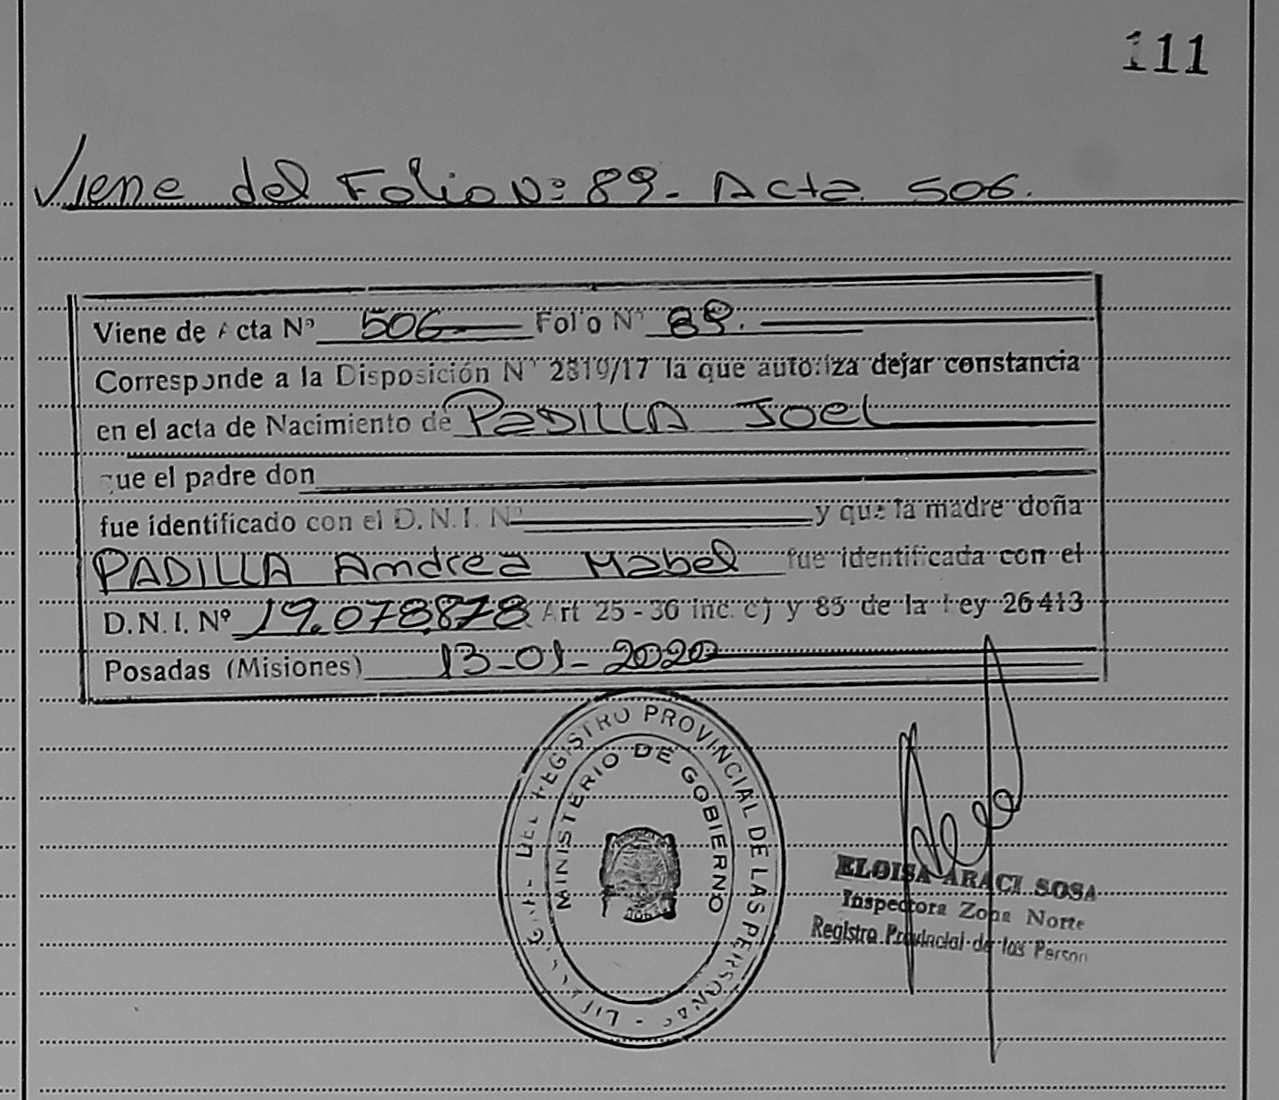 111
Viene del Folio Nº: 89- Acta 506.
Viene de Acta Nº 506 Folio Nº 89.
Corresponde a la Disposición Nº 2819/17 la que autoriza dejar constancia
en el acta de Nacimiento de PADILLA Joel
que el padre don
fue identificado con el D.N.I. Nº y que la madre doña
PADILLA Andrea Mabel fue identificada con el
D.N.I. Nº 19.078.878 Art 25-36 inc. c) y 85 de la Ley 26413
Posadas (Misiones) 13-01-2020
DEL REGISTRO PROVINCIAL DE LAS PERSONAS
MINISTERIO DE GOBIERNO
ELOISA ARACI SOSA
Inspectora Zona Norte
Registro Provincial de las Person